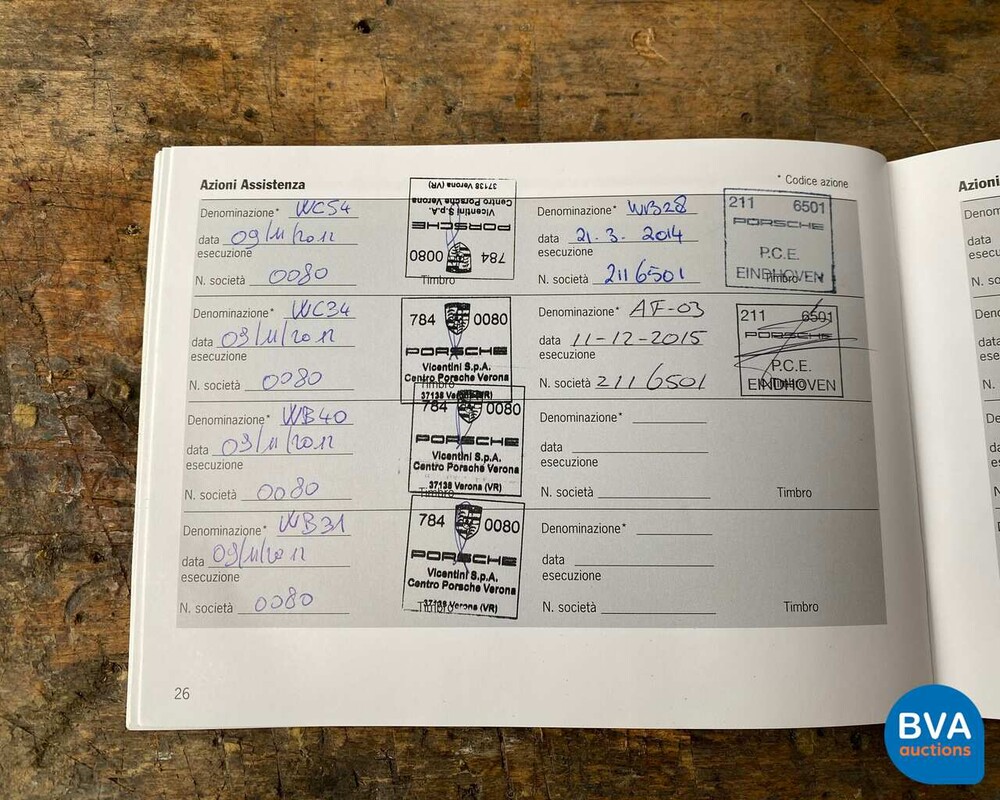 Azioni Assistenza
* Codice azione
Denominazione* WC54
data 09/11/2012
esecuzione
N. società 0080
Timbro
784 0080
PORSCHE
Vicentini S.p.A.
Centro Porsche Verona
37138 Verona (VR)
Denominazione* WC34
data 09/11/2012
esecuzione
N. società 0080
Timbro
784 0080
PORSCHE
Vicentini S.p.A.
Centro Porsche Verona
37138 Verona (VR)
Denominazione* WB40
data 09/11/2012
esecuzione
N. società 0080
Timbro
784 0080
PORSCHE
Vicentini S.p.A.
Centro Porsche Verona
37138 Verona (VR)
Denominazione* WB31
data 09/11/2012
esecuzione
N. società 0080
Timbro
784 0080
PORSCHE
Vicentini S.p.A.
Centro Porsche Verona
37138 Verona (VR)
Denominazione* WB28
data 21-3-2014
esecuzione
N. società 2116501
Timbro
211 6501
PORSCHE
P.C.E.
EINDHOVEN
Denominazione* AF-03
data 11-12-2015
esecuzione
N. società 2116501
Timbro
211 6501
PORSCHE
P.C.E.
EINDHOVEN
Denominazione*
data
esecuzione
N. società
Timbro
Denominazione*
data
esecuzione
N. società
Timbro
26
Azioni
data
BVA
auctions